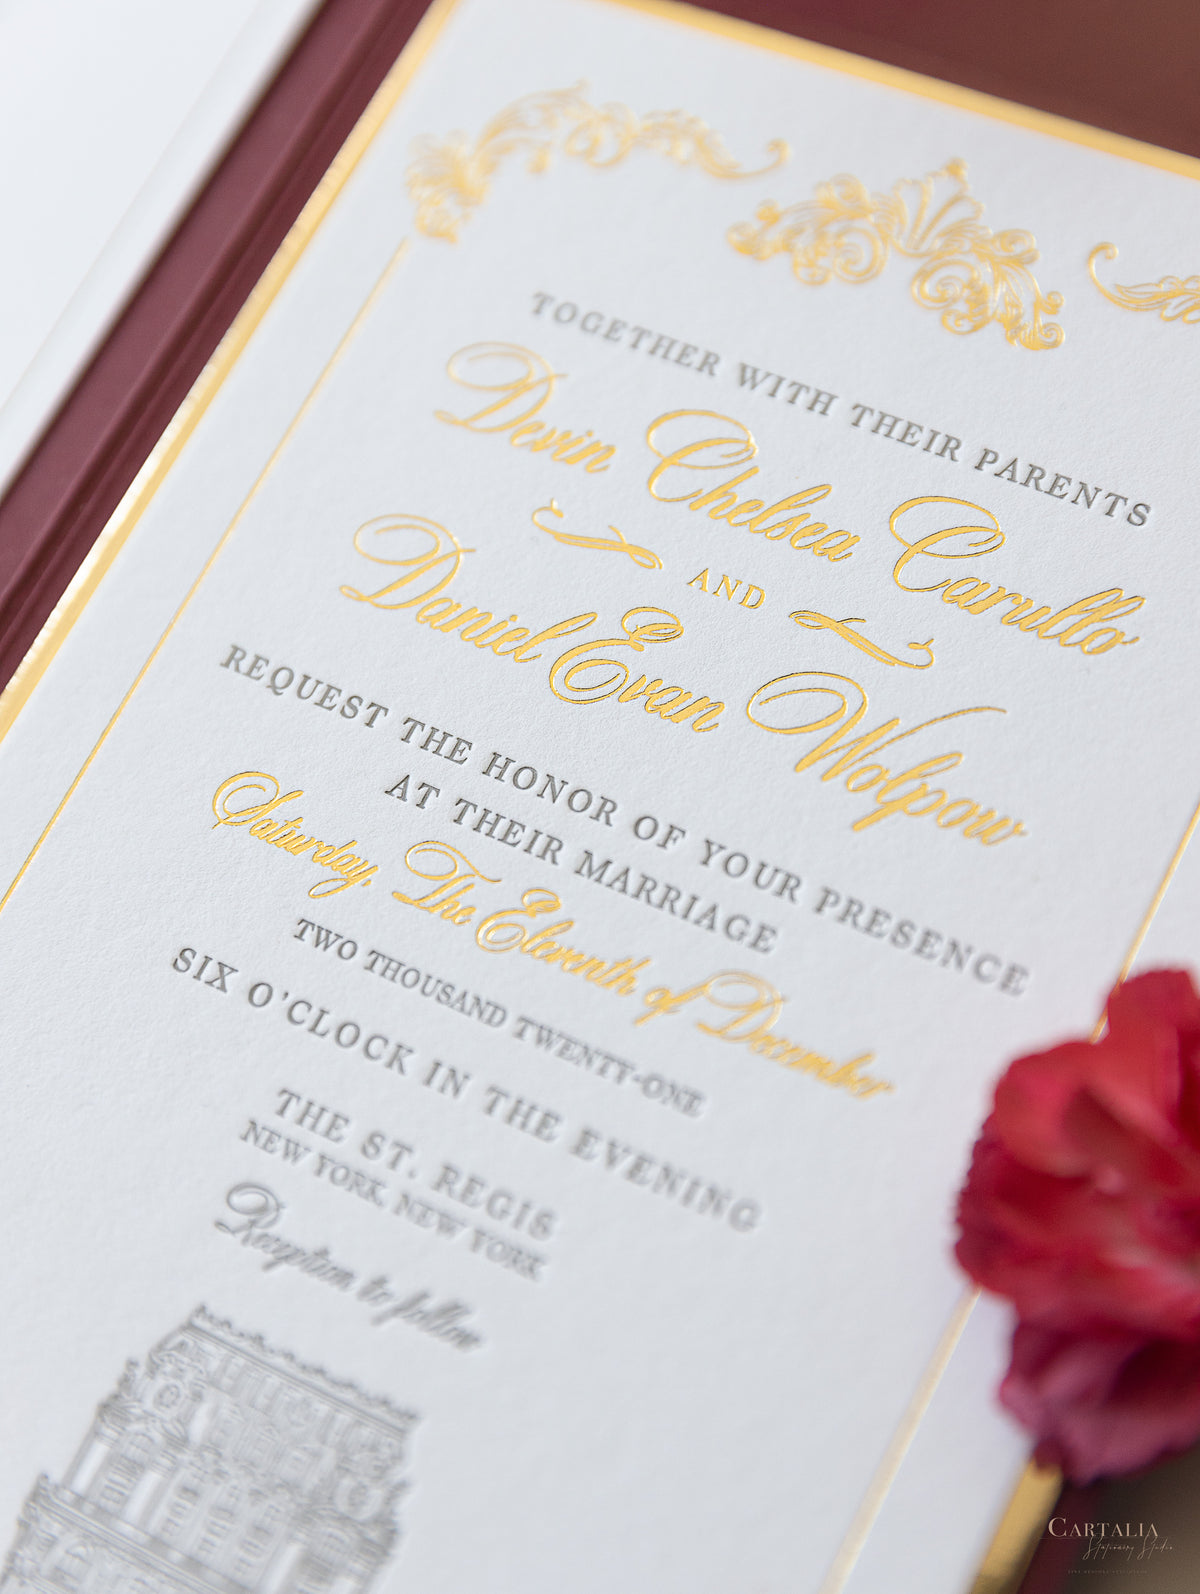 TOGETHER WITH THEIR PARENTS
Devin Chelsea Carullo
AND
Daniel Evan Wolpow
REQUEST THE HONOR OF YOUR PRESENCE
AT THEIR MARRIAGE
Saturday, The Eleventh of December
TWO THOUSAND TWENTY-ONE
SIX O'CLOCK IN THE EVENING
THE ST. REGIS
NEW YORK, NEW YORK
Reception to follow
CARTALIA
Stationery Studio